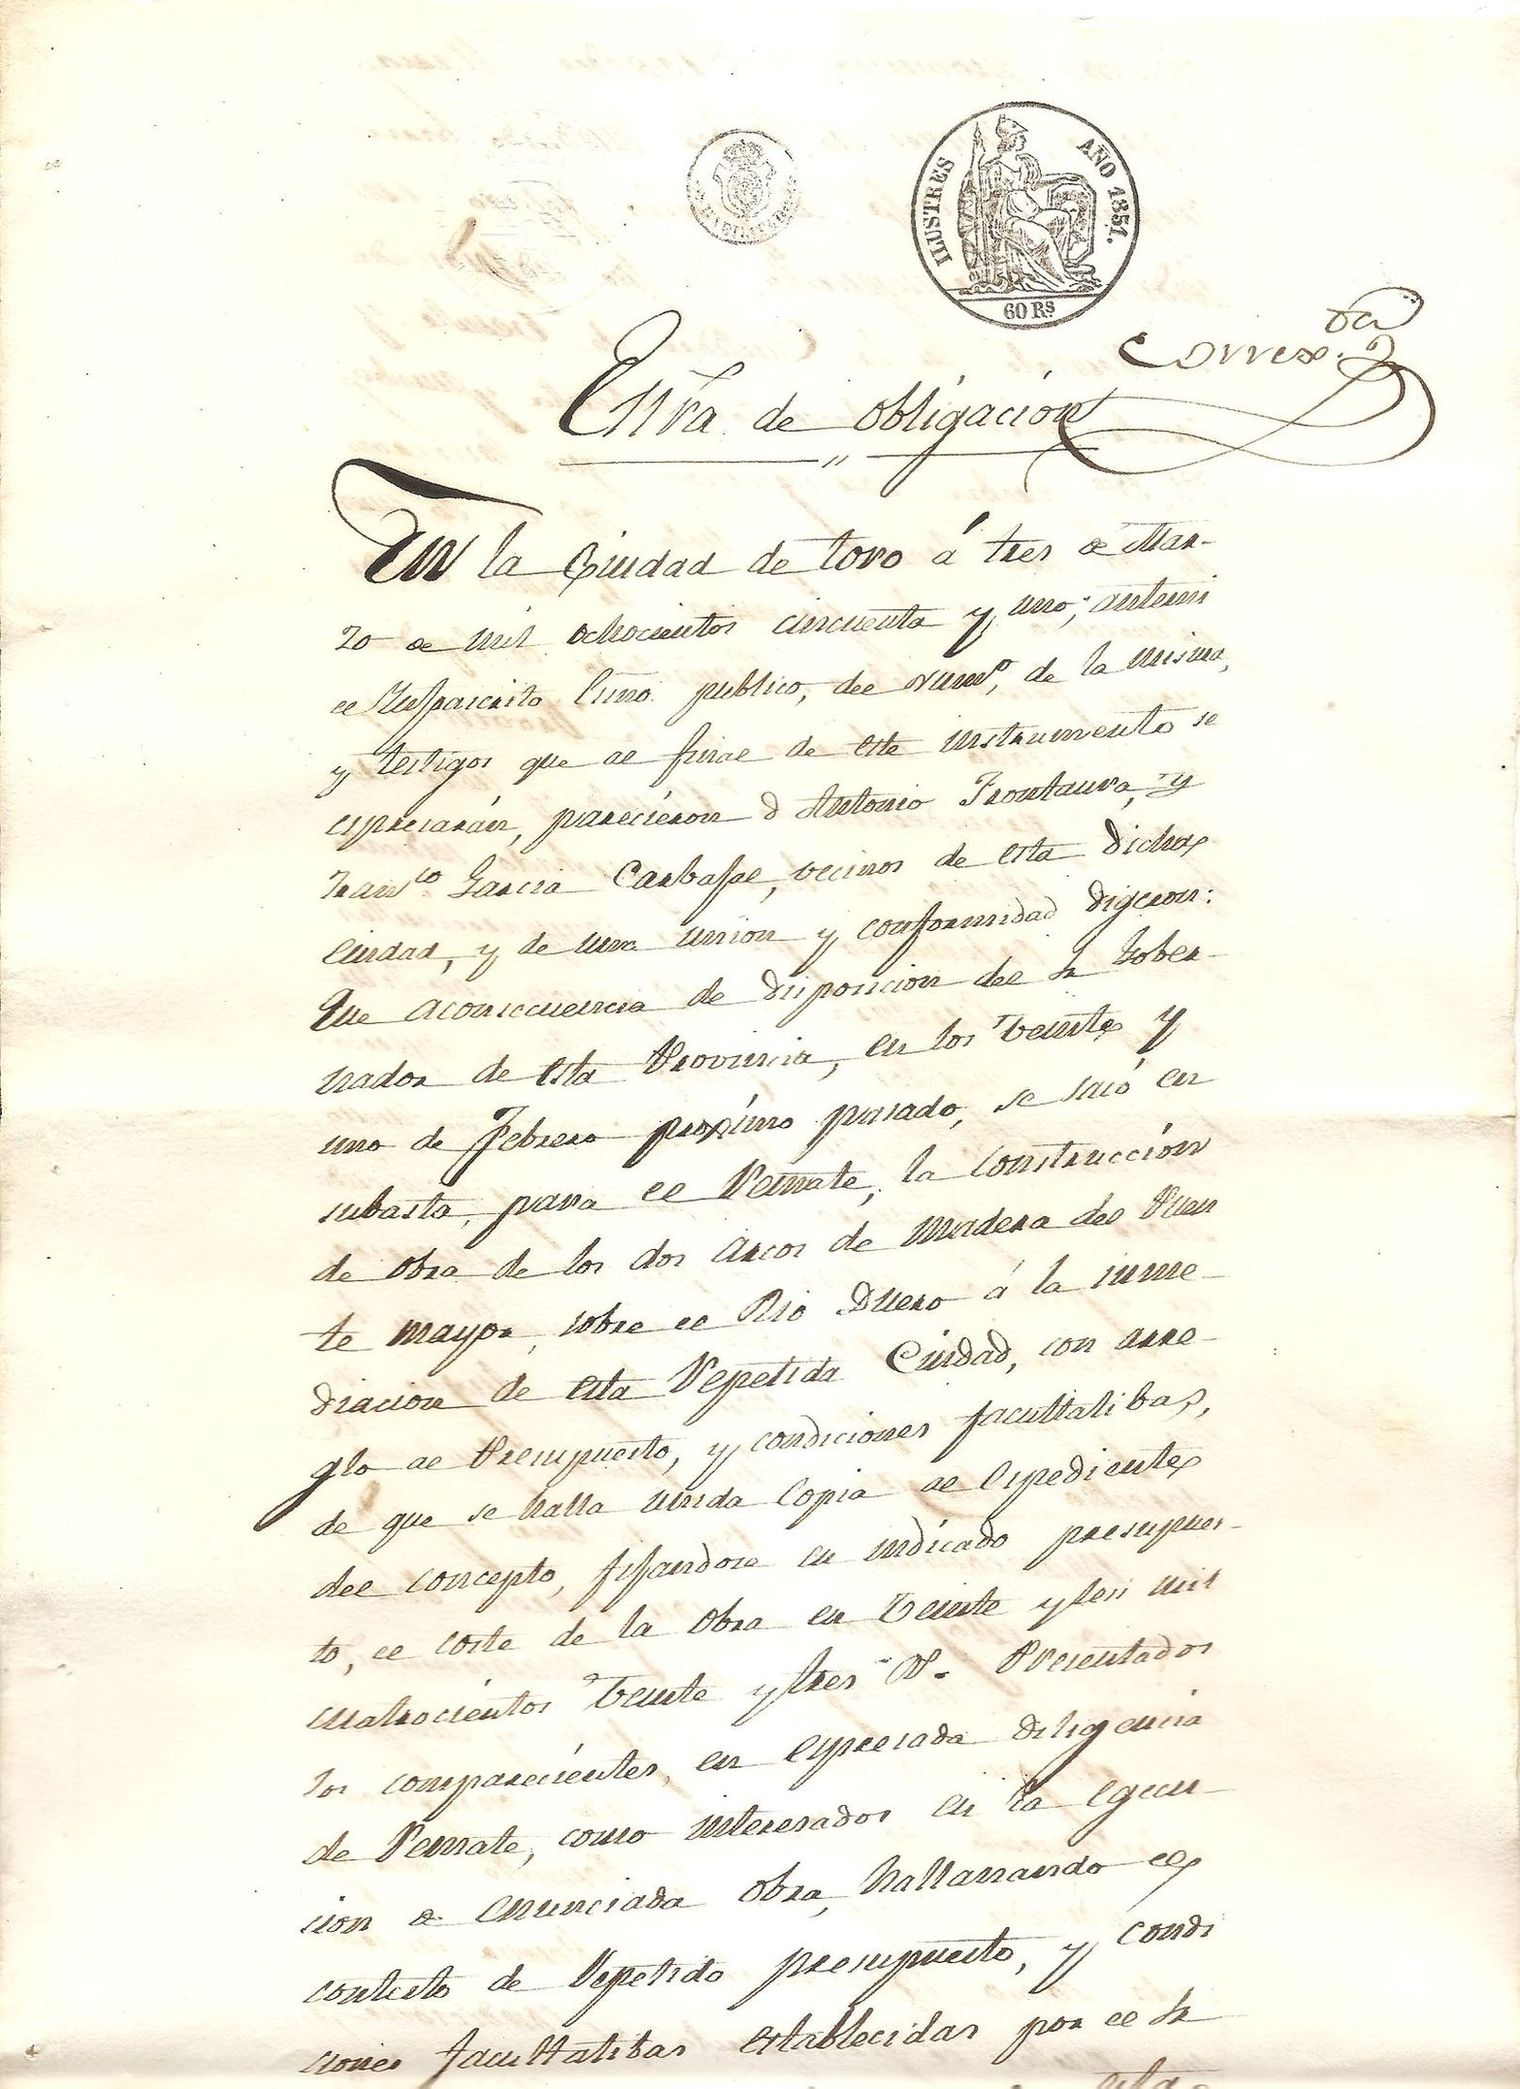 ILUSTRES AÑO 1851.
60 Rs
Correx.ta
Essra de obligación
En la Ciudad de toro á tres de Mar-
zo de mil ochocientos cincuenta y uno; antemi
el Infraescrito Essno publico, del num.o, de la misma,
y testigos que al final de este instrumento se
expresarán, parecieron D Antonio Frontaura, y
Fran.co Garcia Carbajal, vecinos de esta dicha
Ciudad, y de una union y conformidad digeron:
Que aconsecuencia de disposicion del Sr Gober-
nador de esta Provincia, en los veinte y
uno de Febrero proximo pasado, se sacó en
subasta, para el Remate, la Construcción
de obra de los dos arcos de madera del Puen
te mayor, sobre el Rio Duero á la inme-
diacion de esta Repetida Ciudad, con arre-
glo al Presupuesto, y condiciones facultatibas,
de que se halla unida Copia al Expediente
del concepto, fijandose en indicado presupues-
to, el coste de la obra en veinte y seis mil
cuatrocientos veinte y tres Rs. Presentados
los comparecientes, en expresada diligencia
de Remate, como interesados en la egecu-
cion de enunciada obra, hallanando el
contesto de Repetido presupuesto, y condi
ciones facultatibas establecidas por el Sr